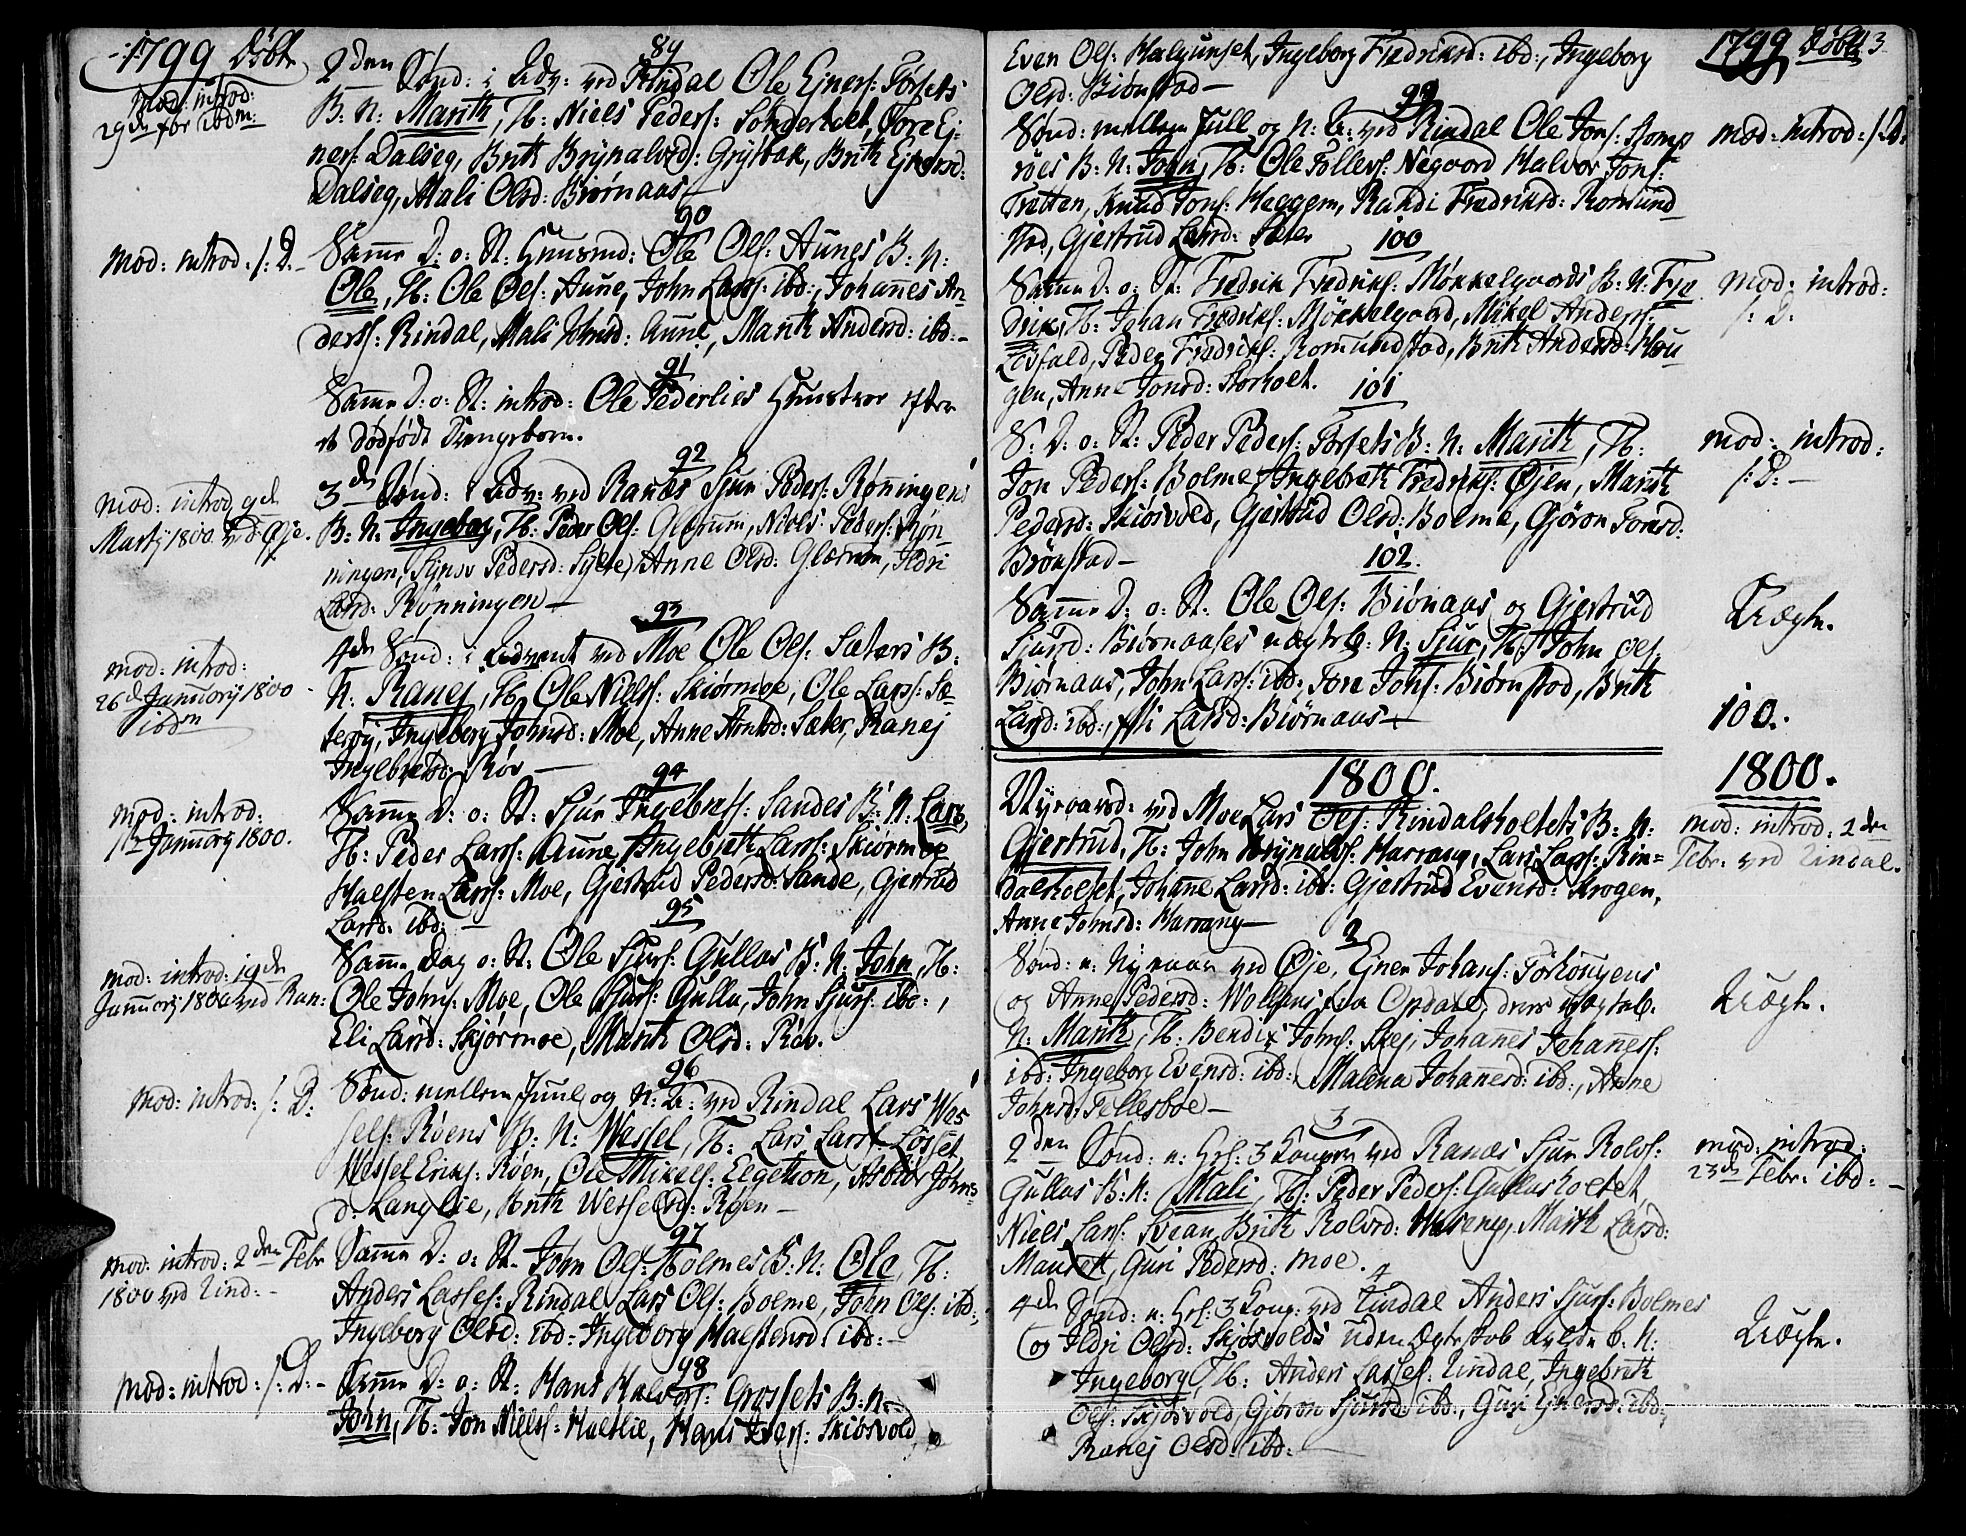 1799 Døbte
Mod: introd:
29de for ibdm:
89
2den Sønd: i Adv: ved Rindal Ole Ejners: Forsets
B: N: Marith, Th: Niels Peders: Sønderholt, Tore Ej-
ners: Dalseg, Brith Brynalvsd: Grytbak, Brith Ejnersd:
Dalseg, Mali Olsd: Biørnaas
90
Mod: introd: s: D:
Samme D: o: St: Huusmd: Ole Ols: Aunes B: N:
Ole, Th: Ole Ols: Aune, John Larss: ibd:, Johanes An-
derss: Rindal, Mali Johnsd: Aune, Marith Andersd: ibd:
91
Samme D: o: St: introd: Ole Pederlies Hunstroe efter
et dødfødt Drengebarn.
92
Mod: introd 9de
Martj 1800 ved Øje.
3de Sønd: i Adv: ved Ranæs Sjur Peders: Rønningens
B: N: Ingeborg, Th: Peder Ols: Glærum, Niels Peders: Røn-
ningen, Synov Pedersd: Sylte, Anne Olsd: Glærum, Ildri
Larsd: Rønningen
93
Mod: introd:
26de Januarij 1800
ibdm
4de Sønd: i Advent ved Moe Ole Ols: Sæters B:
N: Ranej, Th: Ole Niels: Skiørmoe, Ole Larss: Sæ-
terøy, Ingeborg Johnsd: Moe, Anne Arntsd: Sæter, Ranej
Ingebretsd: Røv
94
Mod: introd:
1ste Januarij 1800.
Samme D: o: St: Sjur Ingebrets: Sandes B: N: Lars,
Th: Peder Larss: Aune, Ingebrith Larss: Skiørmoe
Halsten Larss: Moe, Gjertrud Pedersd: Sande, Gjertrud
Larsd: ibd:
95
Mod: introd: 19de
Januarij 1800 ved Ran:
Samme Dag o: St: Ole Sjurs: Gullas B: N: John, Th:
Ole Johns: Moe, Ole Sjurs: Gulla, John Sjurs: ibd:,
Eli Larsd: Skjørmoe, Marith Olsd: Røv.
96
Mod: introd: s: D:
Sønd: mellem Juul og N: A: ved Rindal Lars Wes
sels: Røens B: N: Wessel, Th: Lars Larss: Løsset,
Wessel Eriks: Røen, Ole Mikels: Elgethon, Asbiør Johns-
d: Langlie, Brith Wesselsd: Røen
97
Mod: introd: 2den Febr
1800 ved Rind:
Samme D: o: St: John Ols: Bolmes B: N: Ole, Th:
Anders Lasses: Rindal, Lars Ols: Bolme, John Ols: ibd:,
Ingeborg Olsd: ibd: Ingeborg Halstensd: ibd:
98
Mod: introd: s: D:
Samme D: o: St: Hans Halvors: Grossets B: N:
John, Th: Jon Niels: Haltlie, Hans Ivers: Skiøsvold
1799 Døbte 3.
Even Ols: Halgunset, Ingeborg Fredriksd: ibd:, Ingeborg
Olsd: Biørnstad
99
Sønd: mellem Jull og N: A: ved Rindal Ole Jons: Stomp
røes B: N: John, Th: Ole Tollefs: Negaard Halvor Jons:
Tretten, Knud Jons: Heggem, Randi Fredriksd: Romund
stad, Gjertrud Larsd: Sæter
Mod: introd: s: D:
100
Samme D: o: St: Fredrik Fredriks: Mønkelgaards B: N: Fre
drik, Th: Johan Fredriks: Mønkelgaard, Mikel Anders:
Løsfald, Peder Fredriks: Romundstad, Brith Andersd: Hou
gen, Anne Jonsd: Storholt.
Mod: introd:
s: D:
101
S: D: o: St: Peder Peders: Forsets B: N: Marith, Th:
Jon Peders: Bolme, Ingebreth Fredriks: Øjen, Marith
Pedersd: Skiøsvold, Gjertrud Olsd: Bolme, Gjøron Tomsd:
Brønstad
Mod: introd:
s: D:
102.
Samme D: o: St: Ole Ols: Biørnaas og Gjertrud
Sjursd: Biørnaases uægte b: N: Sjur, Th: John Ols:
Biørnaas, John Larss: ibd: Tore Johs: Biørnstad, Brith
Larsd: ibd:, Larsd: Biørnaas
Uægte.
100.
1800.
1800.
Nyeaarsd: ved Moe Lars Ols: Rindalsholtets B: N:
Gjertrud, Th: John Brynalds: Harrang, Lars Larss: Rin-
dalsholtet, Johanne Larsd: ibd: Gjertrud Evensd: Krogen,
Anne Johnsd: Harrang
Mod: introd: 2den
Febr: ved Rindal.
2
Sønd: e: Nyeaar ved Øje, Ejner Johans: Torhougens
og Anne Pedersd: Wollens fra Opdal, deres uægte b.
N: Marith, Th: Bendix Johns: Skej, Johanes Johaness:
ibd: Ingeborg Evensd: ibd: Malena Johanesd: ibd:, Anne
Johnsd: Tellesboe
Uægte.
3
2den Sønd: e: Hel: 3 Konger ved Ranæs Sjur Rolvs:
Gullas B: N: Mali, Th: Peder Peders: Gullasholtet,
Niels Lars: Svean, Brith Rolvsd: Harang, Marith Larsd:
Mauseth, Guri Pedersd: Moe.
Mod: introd:
23de Febr: ibd:
4
4de Sønd: e: Hel: 3 Kong: ved Rindal Anders Sjurs: Bolmes
og Ildri Olsd: Skjøsvolds uden Ægteskab avlede b: N:
Ingeborg, Th: Anders Lasses: Rindal, Ingebrith
Ols: Skjøsvold, Gjøron Sjursd: ibd:, Guri Ejnersd: ibd:,
Ranej Olsd: ibd:
Uægte.